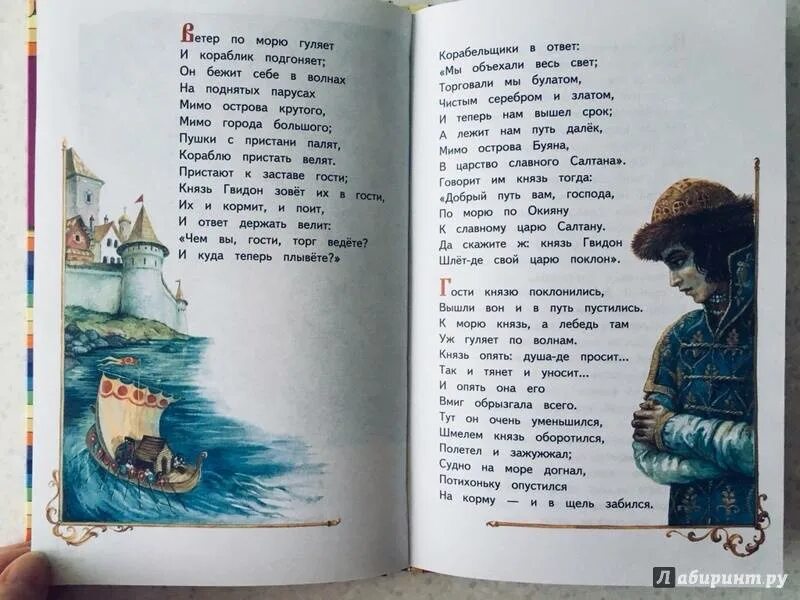 Ветер по морю гуляет
И кораблик подгоняет;
Он бежит себе в волнах
На поднятых парусах
Мимо острова крутого,
Мимо города большого;
Пушки с пристани палят,
Кораблю пристать велят.
Пристают к заставе гости;
Князь Гвидон зовёт их в гости,
Их и кормит, и поит,
И ответ держать велит:
«Чем вы, гости, торг ведёте?
И куда теперь плывёте?»
Корабельщики в ответ:
«Мы объехали весь свет;
Торговали мы булатом,
Чистым серебром и златом,
И теперь нам вышел срок;
А лежит нам путь далёк,
Мимо острова Буяна,
В царство славного Салтана».
Говорит им князь тогда:
«Добрый путь вам, господа,
По морю по Окияну
К славному царю Салтану.
Да скажите ж: князь Гвидон
Шлёт-де свой царю поклон».
Гости князю поклонились,
Вышли вон и в путь пустились.
К морю князь, а лебедь там
Уж гуляет по волнам.
Князь опять: душа-де просит...
Так и тянет и уносит...
И опять она его
Вмиг обрызгала всего.
Тут он очень уменьшился,
Шмелем князь оборотился,
Полетел и зажужжал;
Судно на море догнал,
Потихоньку опустился
На корму — и в щель забился.
Лабиринт.ру